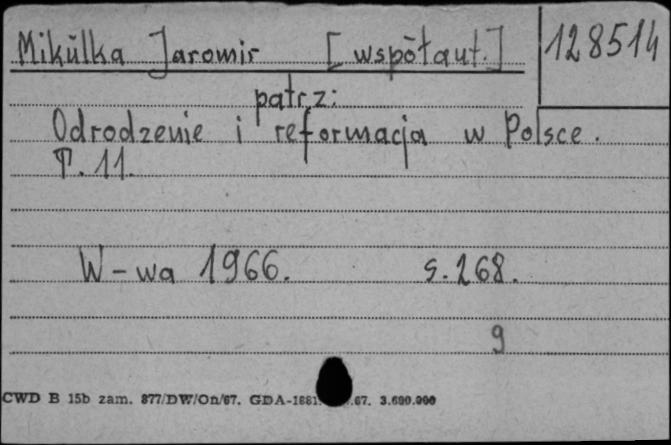 Mikulka Jaromir [współaut.] 128514
patrz:
Odrodzenie i reformacja w Polsce.
T. 11.
W-wa 1966. s. 268.
9
CWD B 15b zam. 877/DW/On/67. GDA-1881. 67. 3.600.000